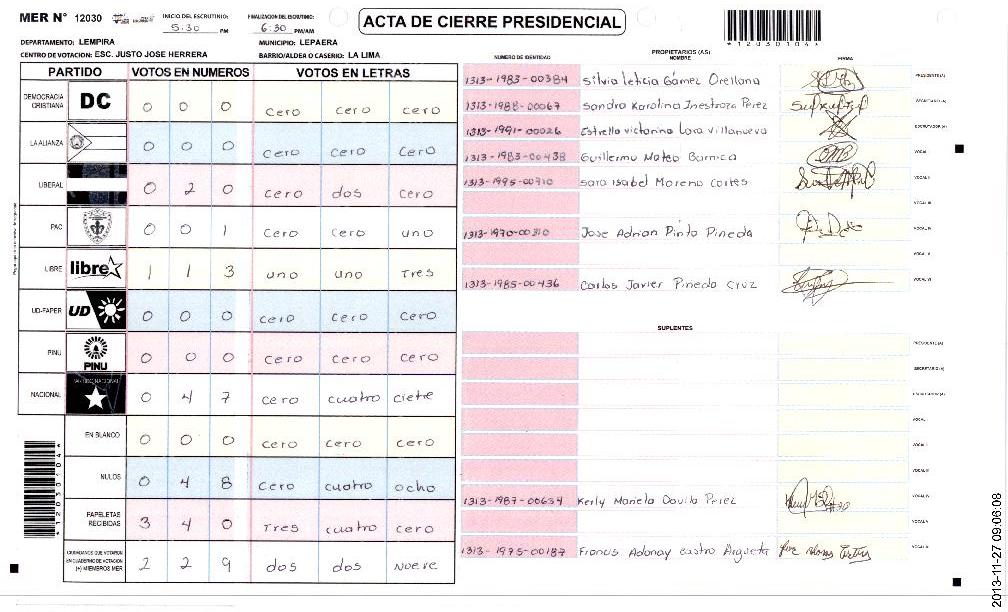 MER N° 12030
INICIO DEL ESCRUTINIO: 5:30 PM
FINALIZACION DEL ESCRUTINIO: 6:30 PM/AM
ACTA DE CIERRE PRESIDENCIAL
*12030104*
DEPARTAMENTO: LEMPIRA
MUNICIPIO: LEPAERA
CENTRO DE VOTACION: ESC. JUSTO JOSE HERRERA
BARRIO/ALDEA O CASERIO: LA LIMA
PARTIDO VOTOS EN NUMEROS VOTOS EN LETRAS
DEMOCRACIA CRISTIANA DC 0 0 0 cero cero cero
LA ALIANZA 0 0 0 cero cero cero
LIBERAL 0 2 0 cero dos cero
PAC 0 0 1 cero cero uno
LIBRE libre 1 1 3 uno uno Tres
UD-FAPER UD 0 0 0 cero cero cero
PINU PINU 0 0 0 cero cero cero
NACIONAL PARTIDO NACIONAL 0 4 7 cero cuatro ciete
EN BLANCO 0 0 0 cero cero cero
NULOS 0 4 8 cero cuatro ocho
PAPELETAS RECIBIDAS 3 4 0 Tres cuatro cero
CIUDADANOS QUE VOTARON EN CUADERNO DE VOTACION (+) MIEMBROS MER 2 2 9 dos dos Nueve
*12030104*
NUMERO DE IDENTIDAD
PROPIETARIOS (AS)
NOMBRE
FIRMA
1313-1983-00384 Silvia leticia Gámez Orellana PRESIDENTE(A)
1313-1988-00067 Sandra Karolina Inestroza Perez SECRETARIO(A)
1313-1991-00026 Estrella victorina Lara Villanueva ESCRUTADOR(A)
1313-1983-00438 Guillermo Mateo Barnica VOCAL I
1313-1995-00710 Sara Isabel Moreno Cortes VOCAL II
VOCAL III
1313-1970-00310 Jose Adrian Pinto Pineda VOCAL IV
VOCAL V
1313-1985-00436 Carlos Javier Pineda Cruz VOCAL VI
SUPLENTES
PRESIDENTE(A)
SECRETARIO(A)
ESCRUTADOR(A)
VOCAL I
VOCAL II
VOCAL III
1313-1987-00634 Kerly Mariela Davila Perez VOCAL IV
VOCAL V
1313-1975-00187 Francis Adonay Castro Argueta VOCAL VI
2013-11-27 09:06:08